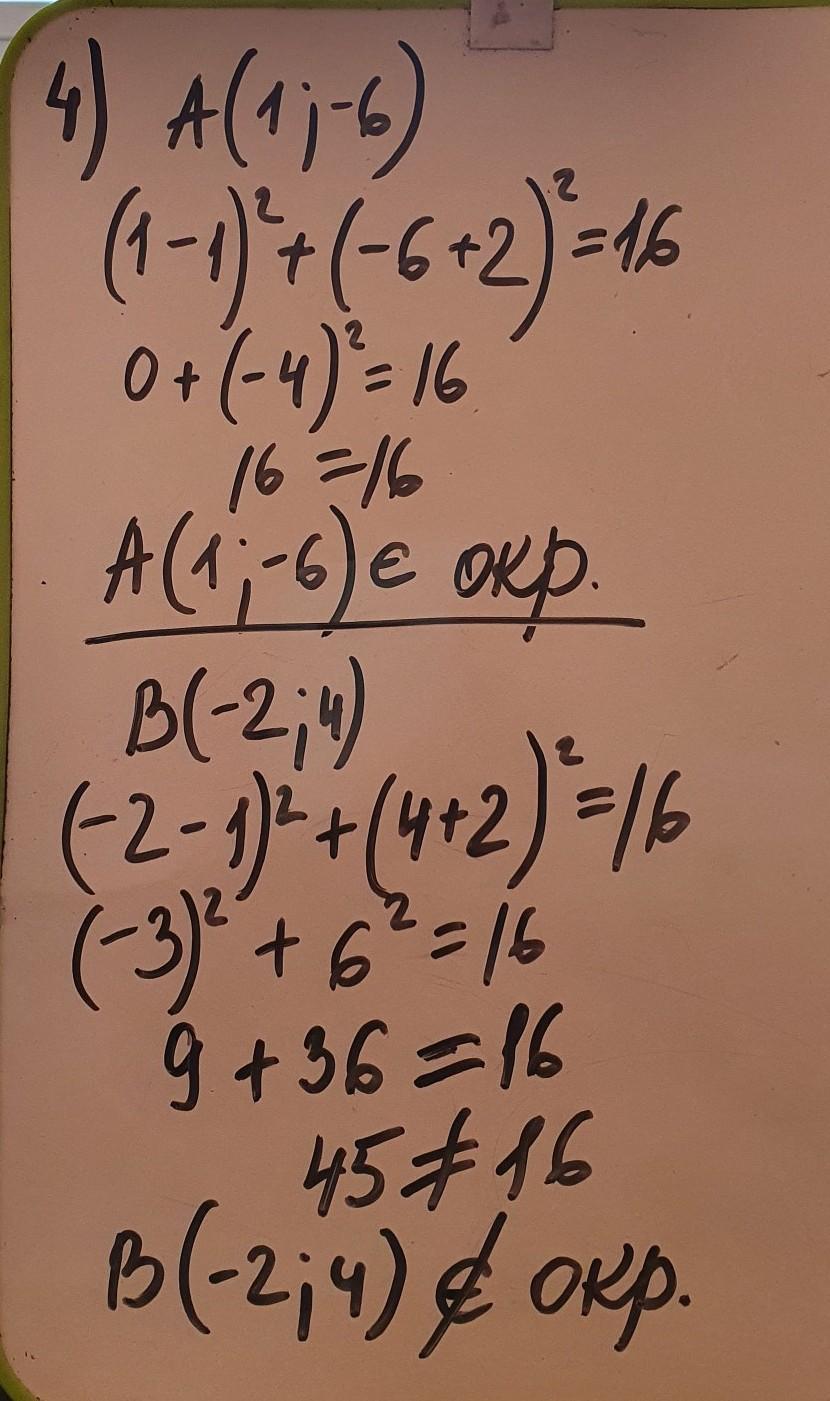 4) A(1;-6)
(1-1)²+(-6+2)²=16
0+(-4)²=16
16=16
A(1;-6)∈ окр.
B(-2;4)
(-2-1)²+(4+2)²=16
(-3)²+6²=16
9+36=16
45≠16
B(-2;4)∉ окр.